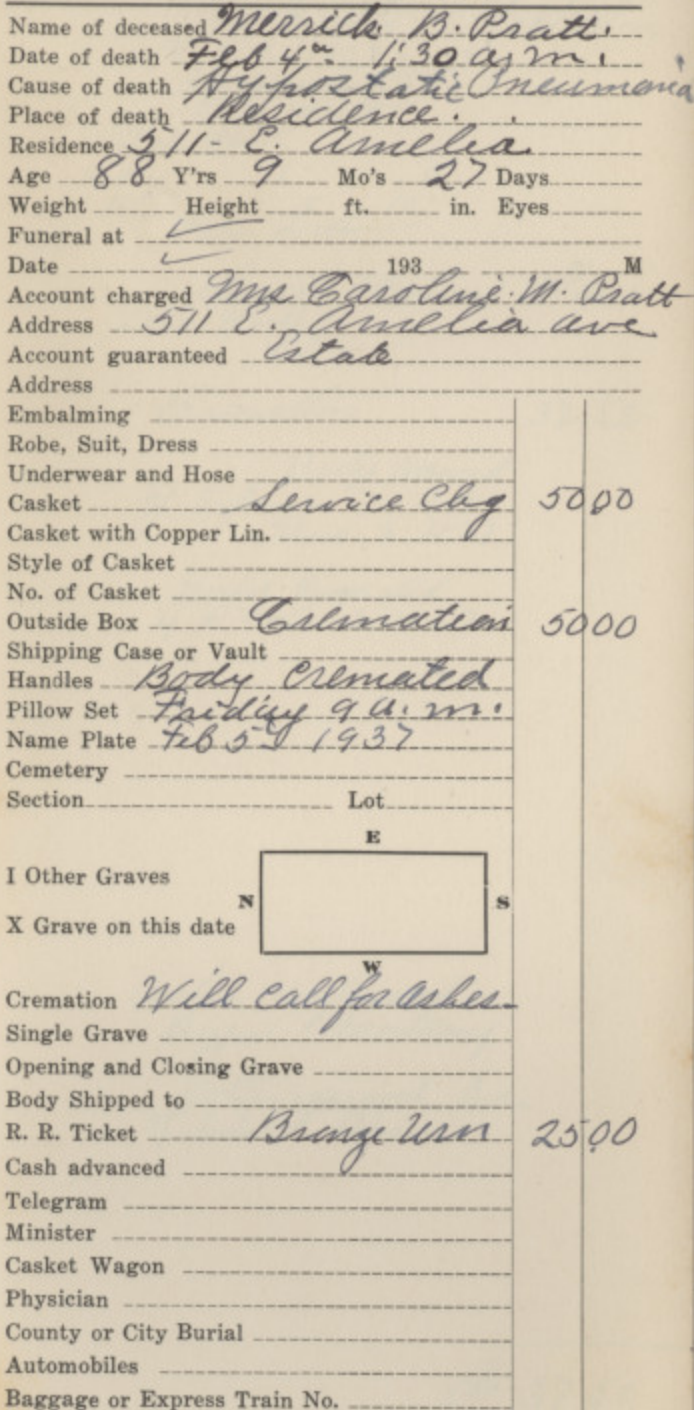 Name of deceased Merrick B. Pratt.
Date of death Feb 4th 1:30 a.m.
Cause of death Hypostatic Pneumonia
Place of death Residence.
Residence 511 - E. Amelia.
Age 88 Y'rs 9 Mo's 27 Days
Weight Height ft. in. Eyes
Funeral at
Date 193 M
Account charged Mrs Caroline M. Pratt
Address 511 E. Amelia ave
Account guaranteed Estate
Address
Embalming
Robe, Suit, Dress
Underwear and Hose
Casket Service Chg 50 00
Casket with Copper Lin.
Style of Casket
No. of Casket
Outside Box Cremation 50 00
Shipping Case or Vault
Handles Body Cremated
Pillow Set Friday 9 a.m.
Name Plate Feb 5th 1937
Cemetery
Section Lot
E
I Other Graves
N S
X Grave on this date
W
Cremation Will call for ashes-
Single Grave
Opening and Closing Grave
Body Shipped to
R. R. Ticket Bronze Urn 25 00
Cash advanced
Telegram
Minister
Casket Wagon
Physician
County or City Burial
Automobiles
Baggage or Express Train No.